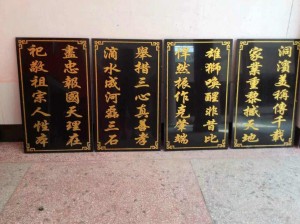 洞濱美稱傳千載
家業重泰撼天地
雄獅喚醒非昔比
然振作
舉措三心真善孝
滴水成河磊三石
盡忠報國天理在
祀敬祖宗人性本